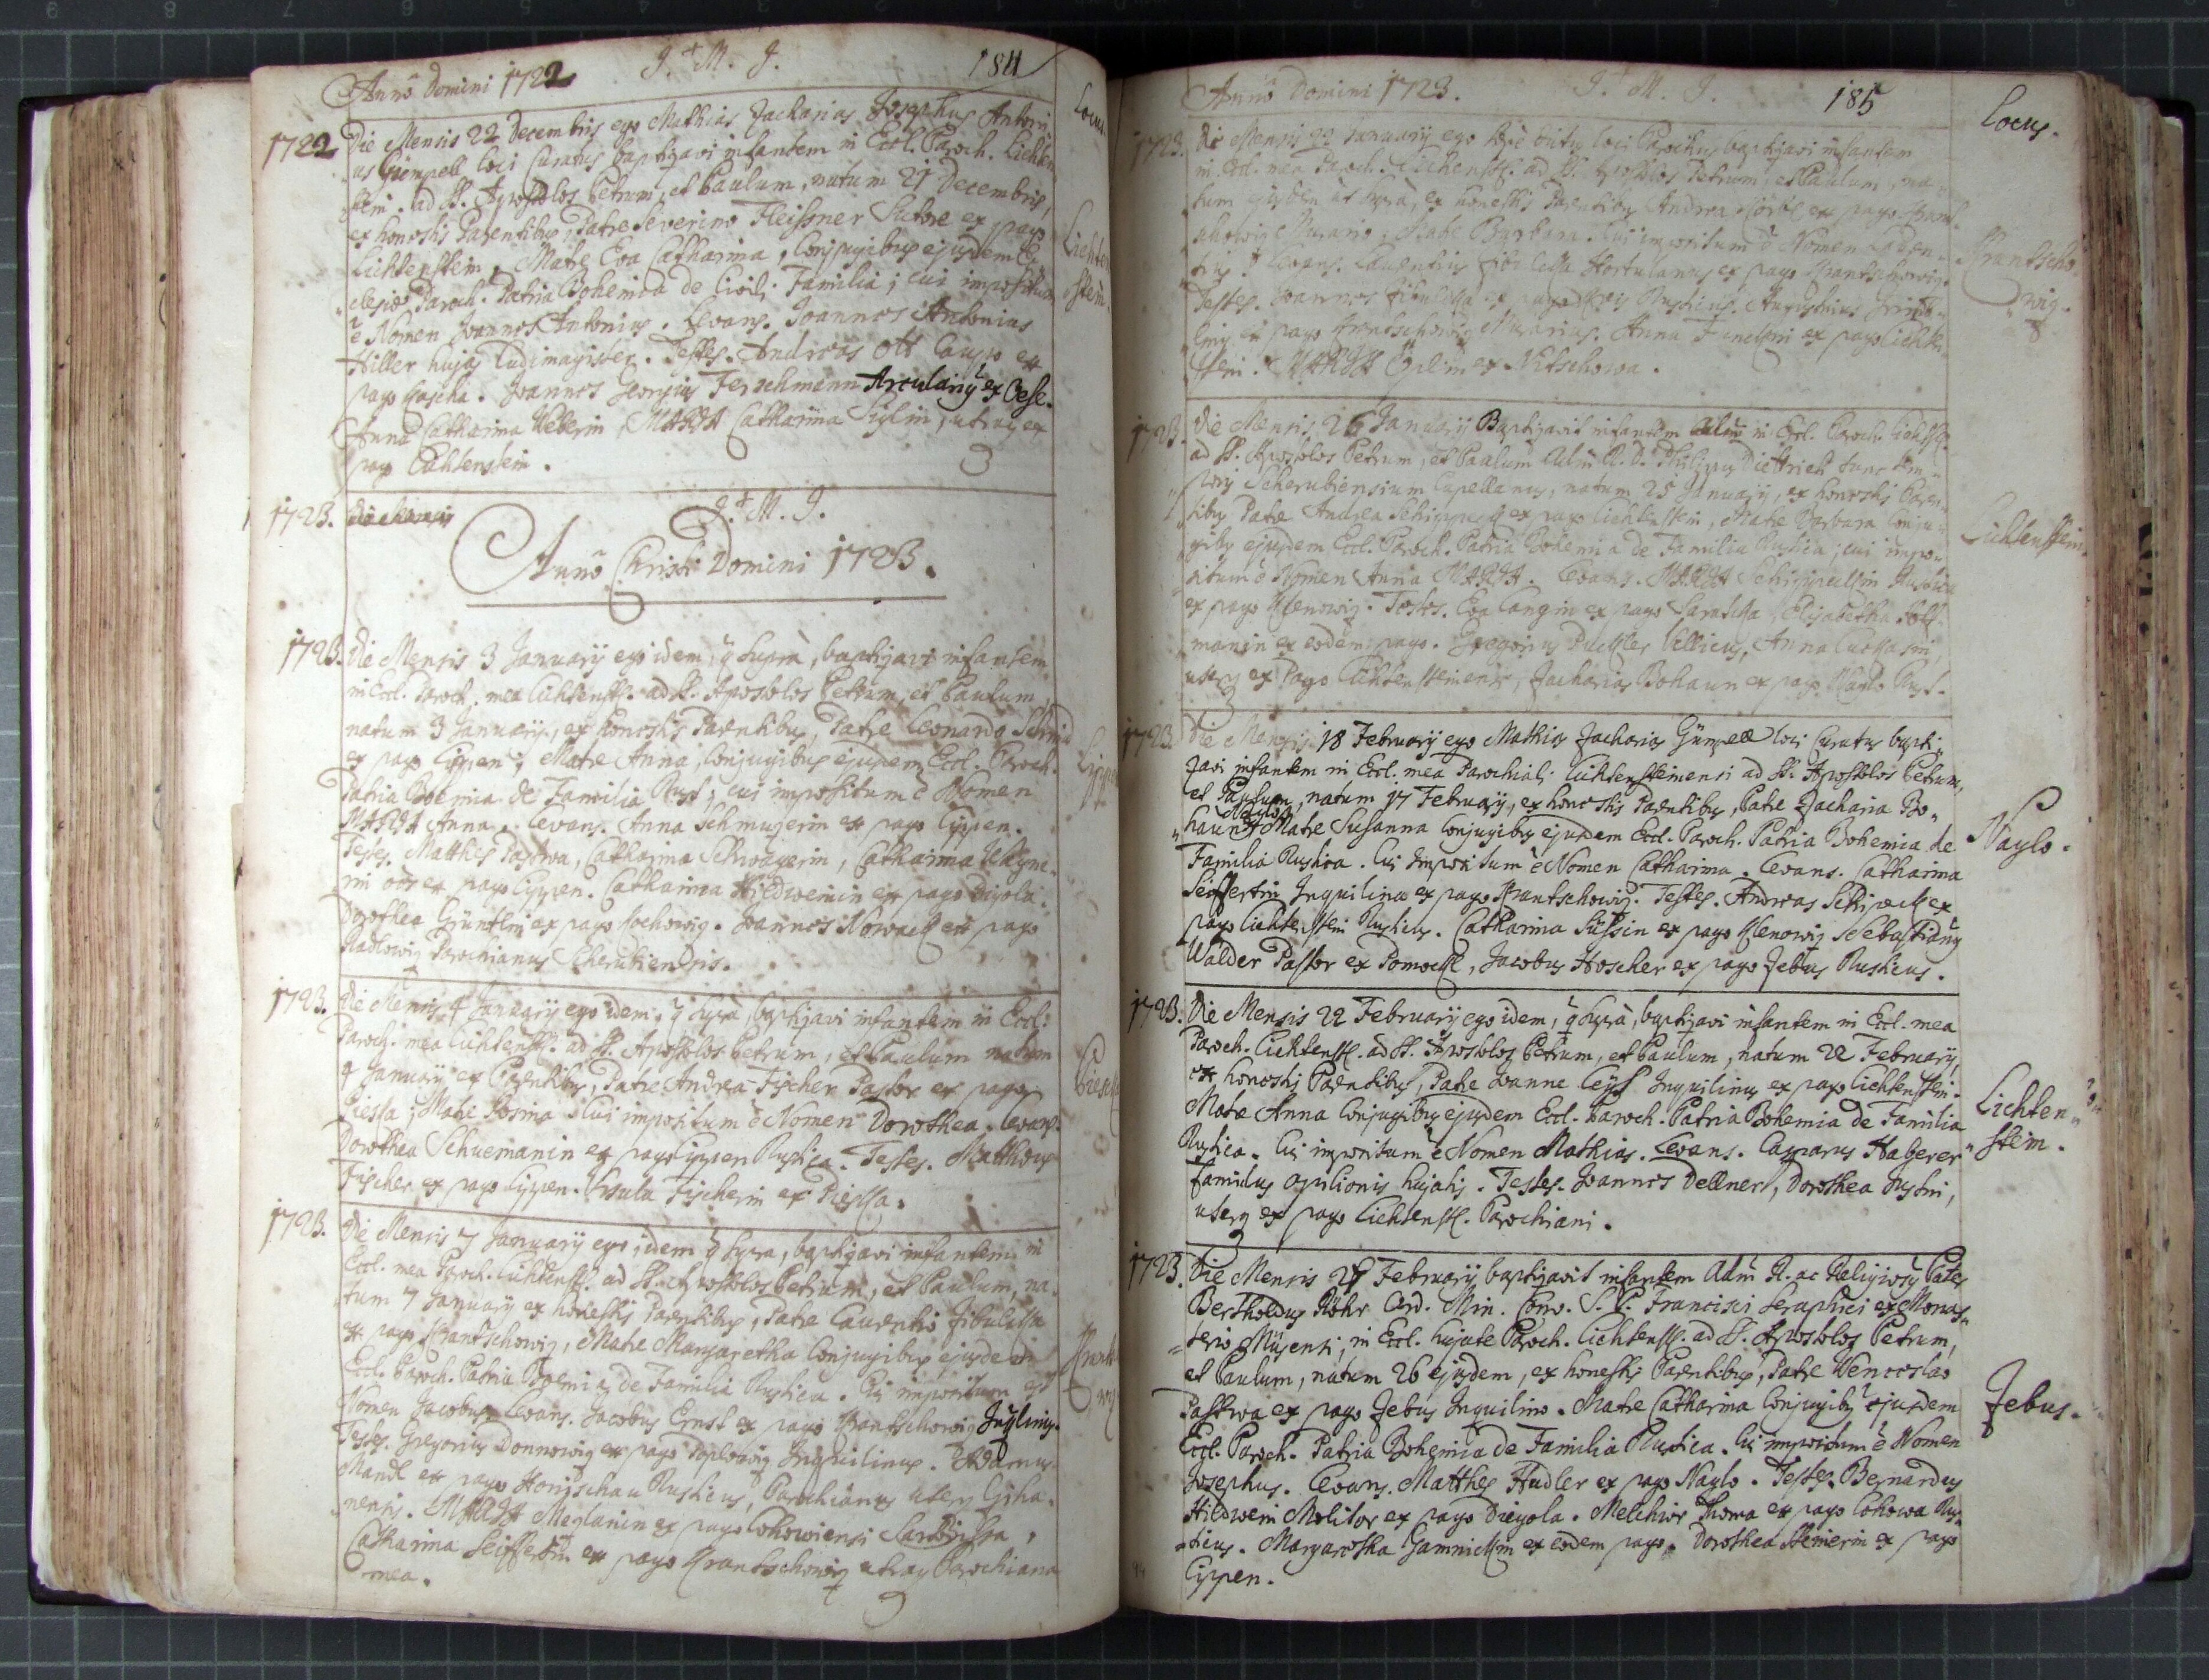 Anno Domini 1722 J. M. J. 184
Locus
1722 Die Mensis 22 Decembris ego Mathias Zacharias Josephus Antoni
us Gümpell loci Curatus baptizavi infantem in Eccl. Paroch. Lichten
stein. ad SS. Apostolos Petrum, et Paulum, natum 21 Decembris,
ex honestis Parentibus, Patre Severino Fleissner Sutore ex pago
Lichtenstein, Matre Eva Catharina, Conjugibus ejusdem Ec
clesiae Paroch. Patria Bohemica de Civili Familia; cui impositum
ē Nomen Joannes Antonius. Levans. Joannes Antonius
Lichten
stein.
Hiller hujas Ludimagister. Testes. Andreas Ott Caupo ex
pago . Joannes Georgius Ferschmann Arculariq ex Oese.
Anna Catharina Weberin, MARIA Catharina , utraq ex
pago Lichtenstein.
1723. J. M. J.
Anno Christi Domini 1723.
1723. Die Mensis 3 January ego idem, q supra, baptizavi infantem
in Eccl. Paroch. mea Lichtenst. ad SS. Apostolos Petrum, et Paulum,
natum 3 January, ex honestis Parentibus, Patre Leonardo Schmid
ex pago Lippen; Matre Anna, Conjugibus ejusdem Eccl. Paroch.
Patria Boemia de Familia Rust; cui impositum ē Nomen
MARIA Anna. Levans. Anna Schmugerin ex pago Lippen.
Testes. Matthes Pastwa, Catharina Schwagerin, Catharina
ex pago Lippen. Catharina Hiedweinin ex pago Diegola.
Dorothea ex pago . Joannes Nowack ex pago
Radlowig Parochianus Scherubiensis.
1723. Die Mensis 4 January ego idem, q supra, baptizavi infantem in Eccl:
Paroch. mea Lichtenst. ad SS. Apostolos Petrum, et Paulum natum
4 January ex Parentibus, Patre Andrea Fischer Pastor ex pago
Piessa; Matre Rosina. Cui impositum ē Nomen Dorothea. Levans.
Dorothea Schuemanin ex pago Lippen Rustica. Testes. Mattheus
Fischer ex pago Lippen. Ursula Fischerin ex Piessa.
1723. Die Mensis 7 January ego, idem q supra, baptizavi infantem in
Eccl. mea Paroch. Lichtenst. ad SS. Apostolos Petrum, et Paulum, na
tum 7 January ex honestis Parentibus, Patre Laurentio Zibulka
ex pago Krantschowig, Matre Margaretha Conjugibus ejusdem
Eccl. Paroch. Patria Boemia, de Familia Rustica. Cui impositum est
Nomen Jacobus. Levans. Jacobus Ernst ex pago Krantschowig
Testes. Gregorius Donnowig ex pago Inquilinus. Adamus
Mandl ex pago Honischau Rusticus, Parochianus uterq
nensis. MARIA Meglanin ex pago Lohowiensi ,
Catharina Seiffertin ex pago Krantschowig utraq Parochiana
mea.
Anno Domini 1723. J. M. J. 185
Locus.
1723. Die Mensis 22 January ego loci Parochus baptizavi infantem
in Eccl. mea Paroch. Lichtenst. ad SS. Apostolos Petrum, et Paulum, na
tum ejusdem ut supra, ex honestis Parentibus Andrea ex pago Krant
schowig Murario, Matre Barbara. Cui impositum ē Nomen Lauren
tius. Levans. Laurentius Zibulka Hortulanus ex pago Krantschowig.
Krantscho
wig.
Testes. Joannes Zibulka ex pago Rusticus.
ex pago Krantschowig Murarius. Anna ex pago Lichten
stein. MARIA ex Nitschowa.
1723. Die Mensis 26 January Baptizavit infantem in Eccl. Paroch. Lichtst.
ad SS. Apostolos Petrum, et Paulum Adm. R. D. Philippus Diettrich tunc tem
poris Scherubiensium Capellanus, natum 25 January, ex honestis Paren
tibus Patre Andrea ex pago Lichtenstein, Matre Barbara Conju
gibus ejusdem Eccl. Paroch. Patria Bohemia de Familia Rustica; cui impo
situm ē Nomen Anna MARIA. Levans. MARIA Rustica
Lichtenstein.
ex pago Klenowig. Testes. Eva Langin ex pago , Elisabetha
manin ex eodem pago. Gregorius Villicus, Anna
uterq ex Pago Lichtensteinensi, Zacharias Bohaun ex pago Naglo Rust.
1723. Die Mensis 18 February ego Mathias Zacharias Gümpell loci Curatus bapti
zavi infantem in Eccl. mea Parochiali Lichtensteinensi ad SS. Apostolos Petrum,
et Paulum, natum 17 February, ex honestis Parentibus, Patre Zacharia Bo
haun Matre Susanna Conjugibus ejusdem Eccl. Paroch. Patria Bohemia de
Naglo.
Familia Rustica. Cui impositum ē Nomen Catharina. Levans. Catharina
Seiffertin Inquilina ex pago Krantschowig. Testes. Andreas Schipeck ex
pago Lichtenstein Rusticus. Catharina Süssin ex pago Klenowig Sebastianus
Walder Pastor ex Pomeisl, Jacobus Hoscher ex pago Jebus Rusticus.
1723. Die Mensis 22 February ego idem, q supra, baptizavi infantem in Eccl. mea
Paroch. Lichtenst. ad SS. Apostolos Petrum, et Paulum, natum 22 February,
ex honestis Parentibus, Patre Joanne Inquilinus ex pago Lichtenstein.
Matre Anna Conjugibus ejusdem Eccl. Paroch. Patria Bohemia de Familia
Rustica. Cui impositum ē Nomen Mathias. Levans. Casparus Hagerer
Lichten
stein.
famulus opilionis hujatis. Testes. Joannes Dellner, Dorothea Justni,
uterq ex pago Lichtenst. Parochiani.
1723. Die Mensis 27 February baptizavit infantem Adm R. ac Religiosq Pater
Bertholdus Röhr Ord. Min. Conv. S. P. Francisci Seraphici ex Monas
terio Misensi, in Eccl. hujate Paroch. Lichtenst. ad SS. Apostolos Petrum,
et Paulum, natum 26 ejusdem, ex honestis Parentibus, Patre Wenceslao
Pastwa ex pago Jebus Inquilino. Matre Catharina Conjugibq ejusdem
Jebus.
Eccl. Paroch. Patria Bohemia de Familia Rustica. Cui impositum ē Nomen
Josephus. Levans. Matthes Hudler ex pago Naglo. Testes. Bernardus
Hiedwein Molitor ex pago Diegola. Melchior Thoma ex pago Lohowa Rus
ticus. Margaretha Gamnickin ex eodem pago. Dorothea Steinerin ex pago
Lippen.